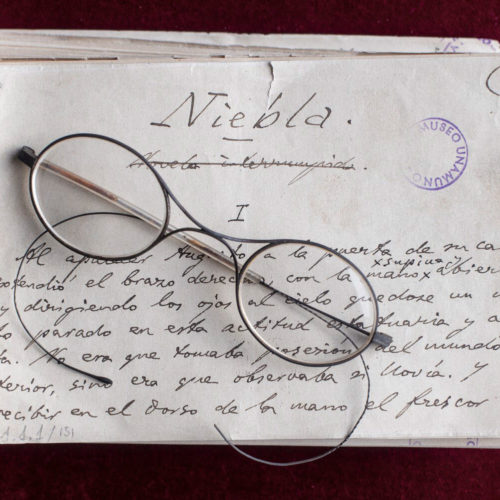 Niebla.
Novela interrumpida.
MUSEO UNAMUNO
I
Al aparecer Augusto a la puerta de su ca
supina
xtendió el brazo derecho, con la mano x abier
y dirigiendo los ojos al cielo quedose un
to parado en esta actitud estatuaria y a
ta. No era que tomaba posesión del mundo
terior, sino era que observaba si llovía. Y
recibir en el dorso de la mano el frescor